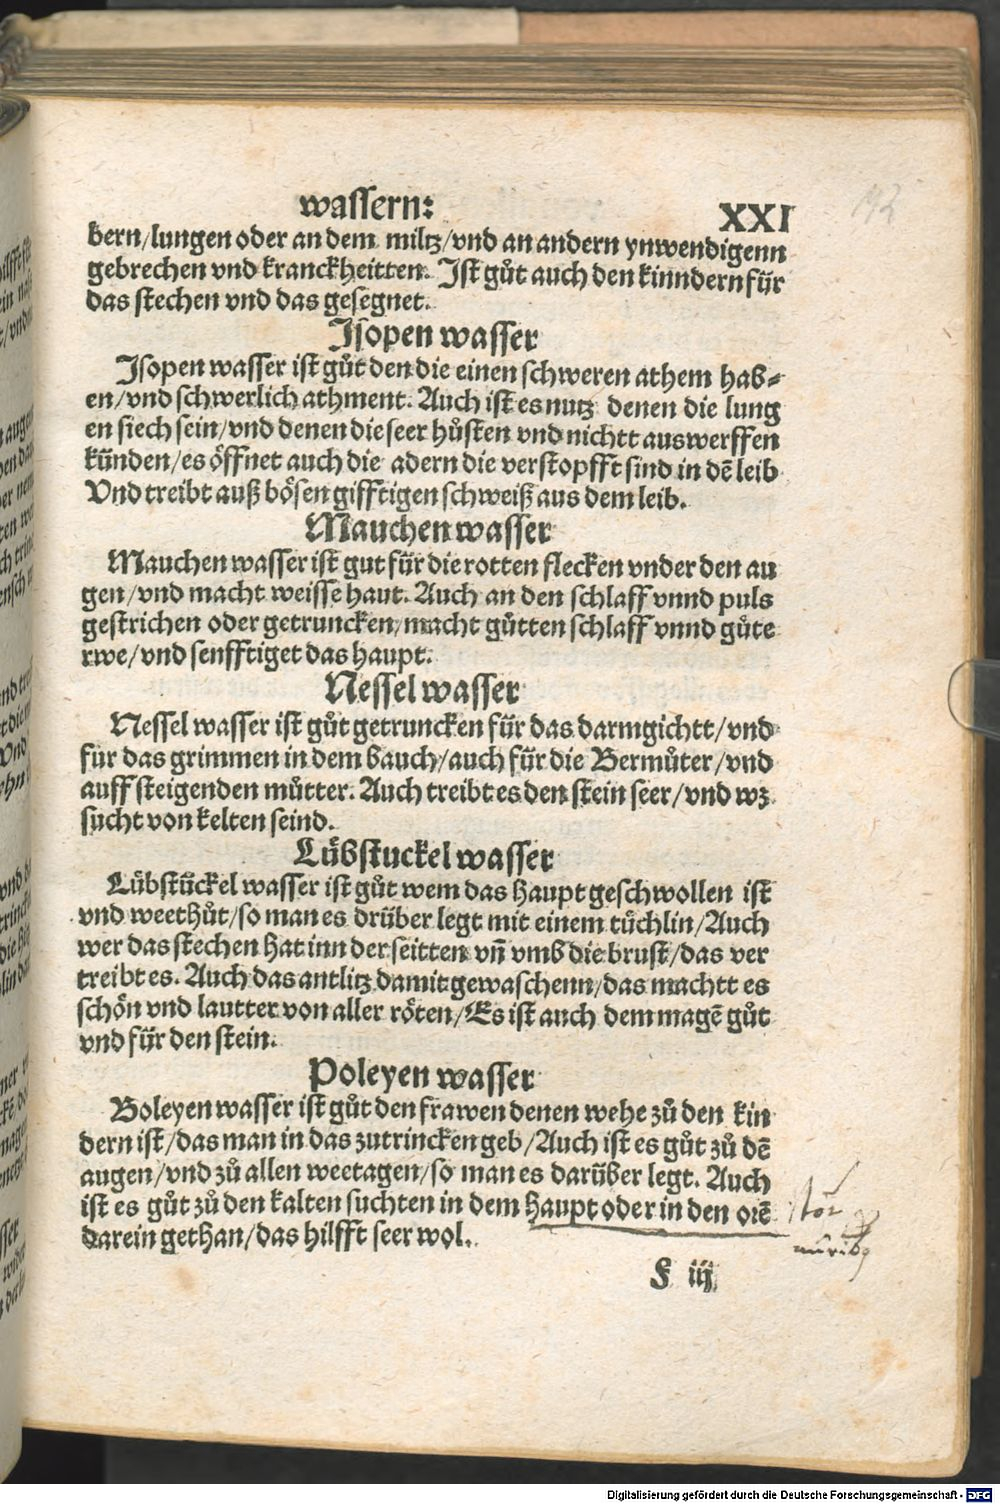 wassern:
XXI
bern/lungen oder an dem miltz/vnd an andern ynwendigenn
gebrechen vnd kranckheitten. Jst gůt auch den kinndern für
das stechen vnd das gesegnet.
Jsopen wasser
Jsopen wasser ist gůt den die einen schweren athem hab⸗
en/vnd schwerlich athment. Auch ist es nutz denen die lung
en siech sein/vnd denen die seer hůsten vnd nichtt auswerffen
künden/es öffnet auch die adern die verstopfft sind in dē leib
Vnd treibt auß bösen gifftigen schweiß aus dem leib.
Mauchen wasser
Mauchen wasser ist gut für die rotten flecken vnder den au
gen/vnd macht weisse haut. Auch an den schlaff vnnd puls
gestrichen oder getruncken/macht gůtten schlaff vnnd gůte
rwe/vnd senfftiget das haupt.
Nessel wasser
Nessel wasser ist gůt getruncken für das darmgichtt/vnd
für das grimmen in dem bauch/auch für die Bermůter/vnd
auff steigenden můtter. Auch treibt es den stein seer/vnd wz
sucht von kelten seind.
Lübstuckel wasser
Lübstůckel wasser ist gůt wem das haupt geschwollen ist
vnd weethůt/so man es drüber legt mit einem tůchlin/Auch
wer das stechen hat inn der seitten vn̄ vmb die brust/das ver
treibt es. Auch das antlitz damit gewaschenn/das machtt es
schön vnd lautter von aller röten/Es ist auch dem magē gůt
vnd für den stein.
Poleyen wasser
Boleyen wasser ist gůt den frawen denen wehe zů den kin
dern ist/das man in das zutrincken geb/Auch ist es gůt zů dē
augen/vnd zů allen weetagen/so man es darüber legt. Auch
ist es gůt zů den kalten suchten in dem haupt oder in den orē
darein gethan/das hilfft seer wol.
F iij
Digitalisierung gefördert durch die Deutsche Forschungsgemeinschaft - DFG